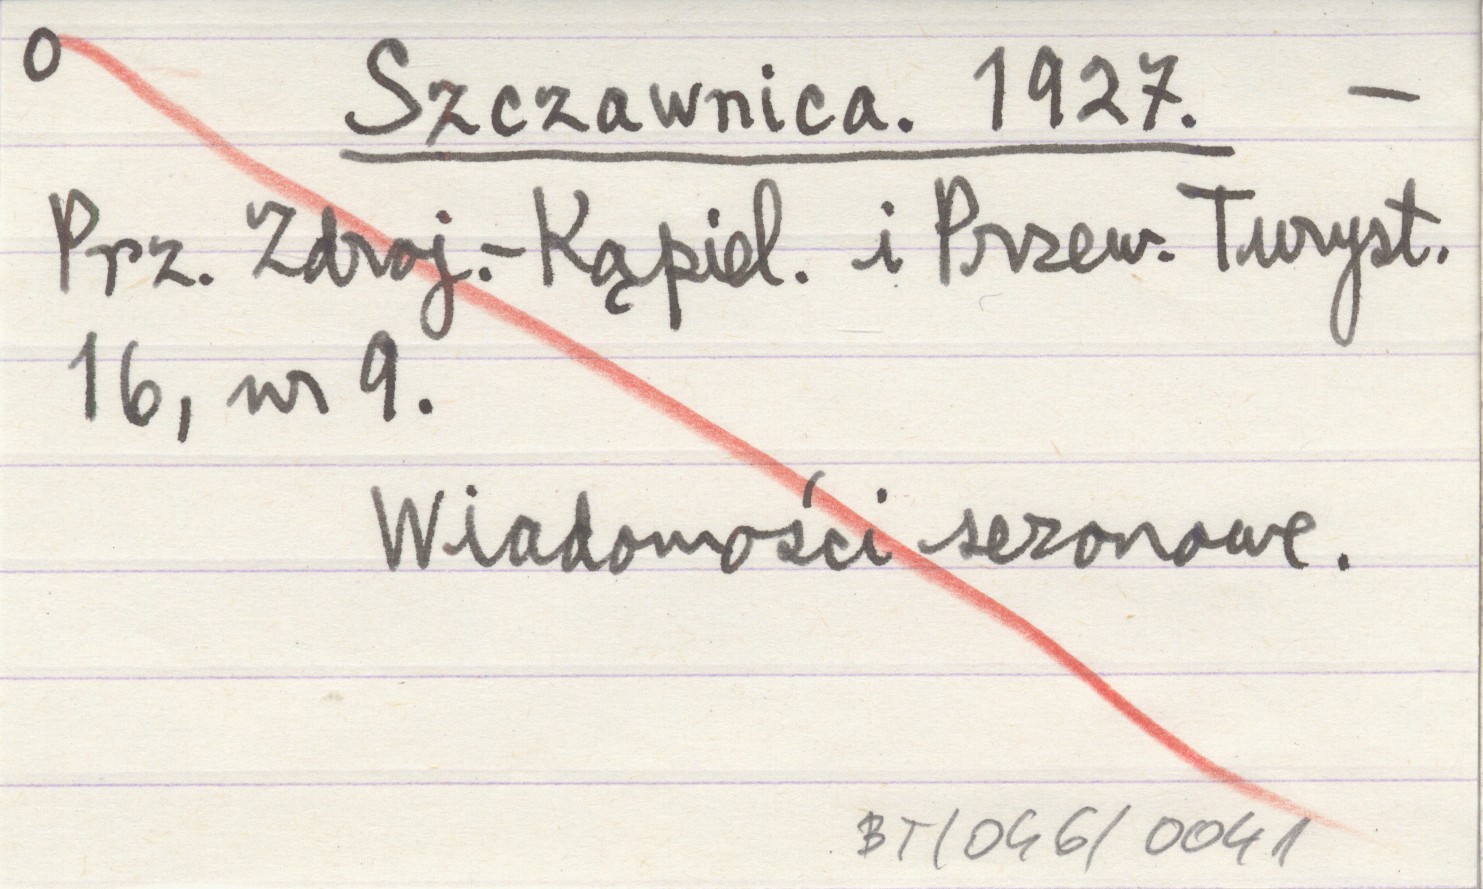 o
Szczawnica. 1927. —
Prz. Zdroj.-Kąpiel. i Przew. Turyst.
16, nr 9.
Wiadomości sezonowe.
BT/046/0041